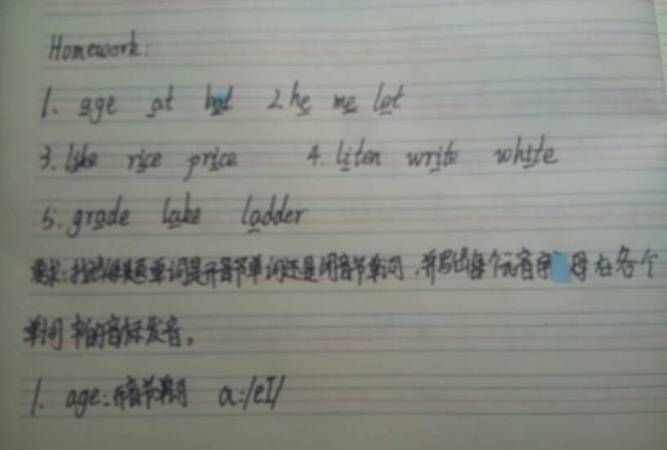 Homework:
1. age at bat 2. he me let
3. like rice price 4. liten write white
5. grade lake ladder
要求:找出每类题单词是开音节单词还是闭音节单词,并写出每个元音字母在各个
单词中的音标发音。
1. age:开音节单词 a:/eI/